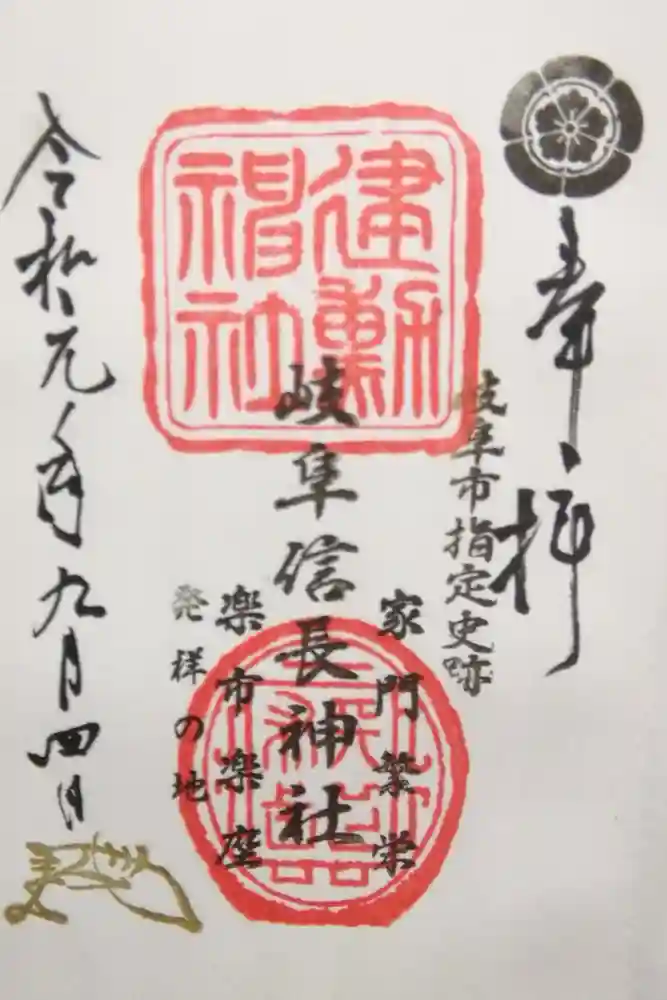 奉拝
岐阜市指定史跡
家門繁栄
建勲
神社
岐阜信長神社
楽市楽座
発祥の地
令和元年九月四日